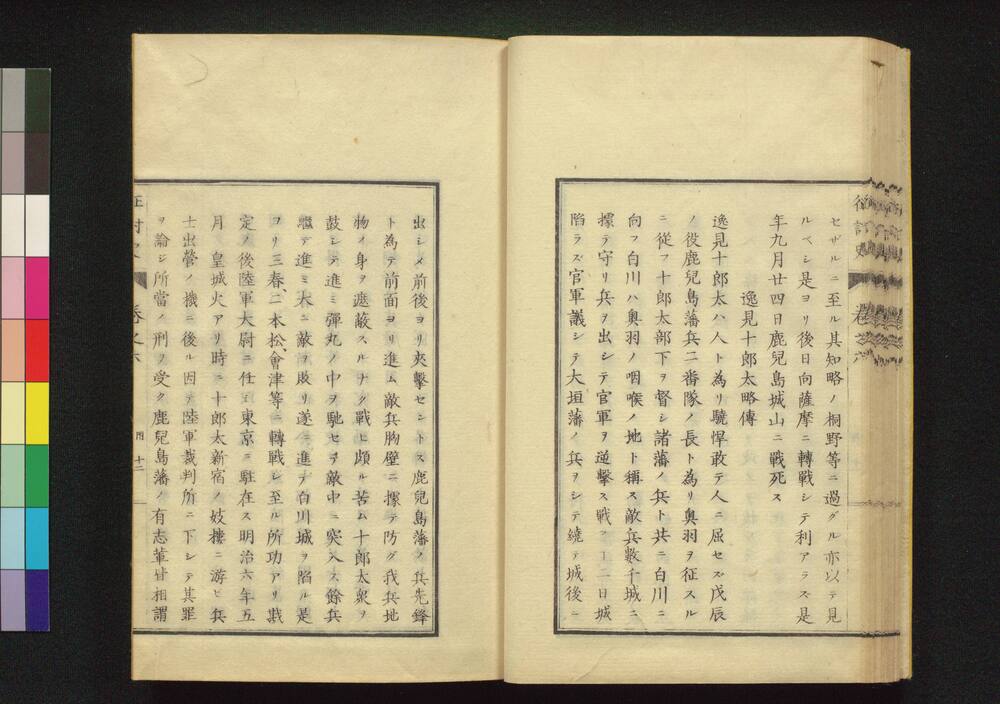 セザルニ至ル其知略ノ桐野等ニ過グル亦以テ見
ルベシ是ヨリ後日向薩摩ニ轉戰シテ利アラズ是
年九月廿四日鹿兒島城山ニ戰死ス
逸見十郎太略傳
逸見十郎太ハ人ト為リ驍悍敢テ人ニ屈セズ戊辰
ノ役鹿兒島藩兵二番隊ノ長ト為リ奥羽ヲ征スル
ニ從フ十郎太部下ヲ督シ諸藩ノ兵ト共ニ白川ニ
向フ白川ハ奥羽ノ咽喉ノ地ト稱ス敵兵數千城ニ
據テ守リ兵ヲ出シテ官軍ヲ逆擊ス戰フ一二日城
陷ラズ官軍議シテ大垣藩ノ兵ヲシテ繞テ城後ニ
出シメ前後ヨリ夾擊セントス鹿兒島藩ノ兵先鋒
ト為テ前面ヨリ進ム敵兵胸壁ニ據テ防グ我兵地
物ノ身ヲ遮蔽スルナク戰ヒ頗ル苦ム十郎太衆ヲ
鼓シテ進ミ彈丸ノ中ヲ馳セテ敵中ニ突入ス餘兵
繼テ進ミ大ニ敵ヲ敗リ遂ニ進テ白川城ヲ陷ル是
ヨリ三春、二本松、會津等ニ轉戰シ至ル所功アリ戡
定ノ後陸軍大尉ニ任ジ東京ニ駐在ス明治六年五
月　皇城火アリ時ニ十郎太新宿ノ妓樓ニ游ビ兵
士出營ノ機ニ後ル因テ陸軍裁判所ニ下シテ其罪
ヲ論ジ所當ノ刑ヲ受ク鹿兒島藩ノ有志輩皆相謂
卷之六
十二